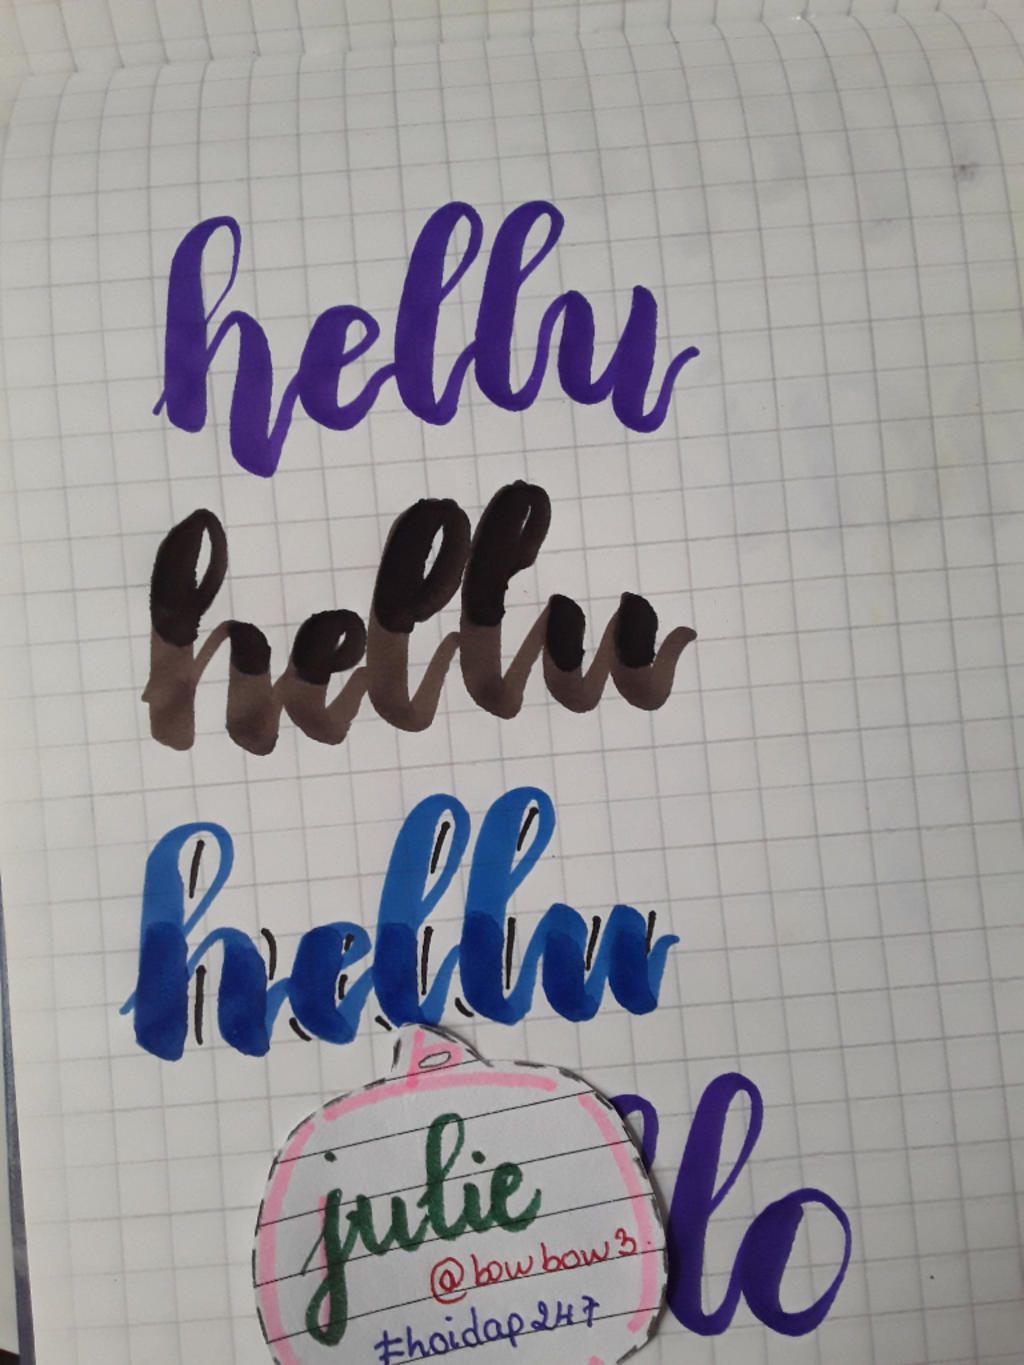 hellu
hellu
hellu
lo
julie
@bowbow3
#hoidap247